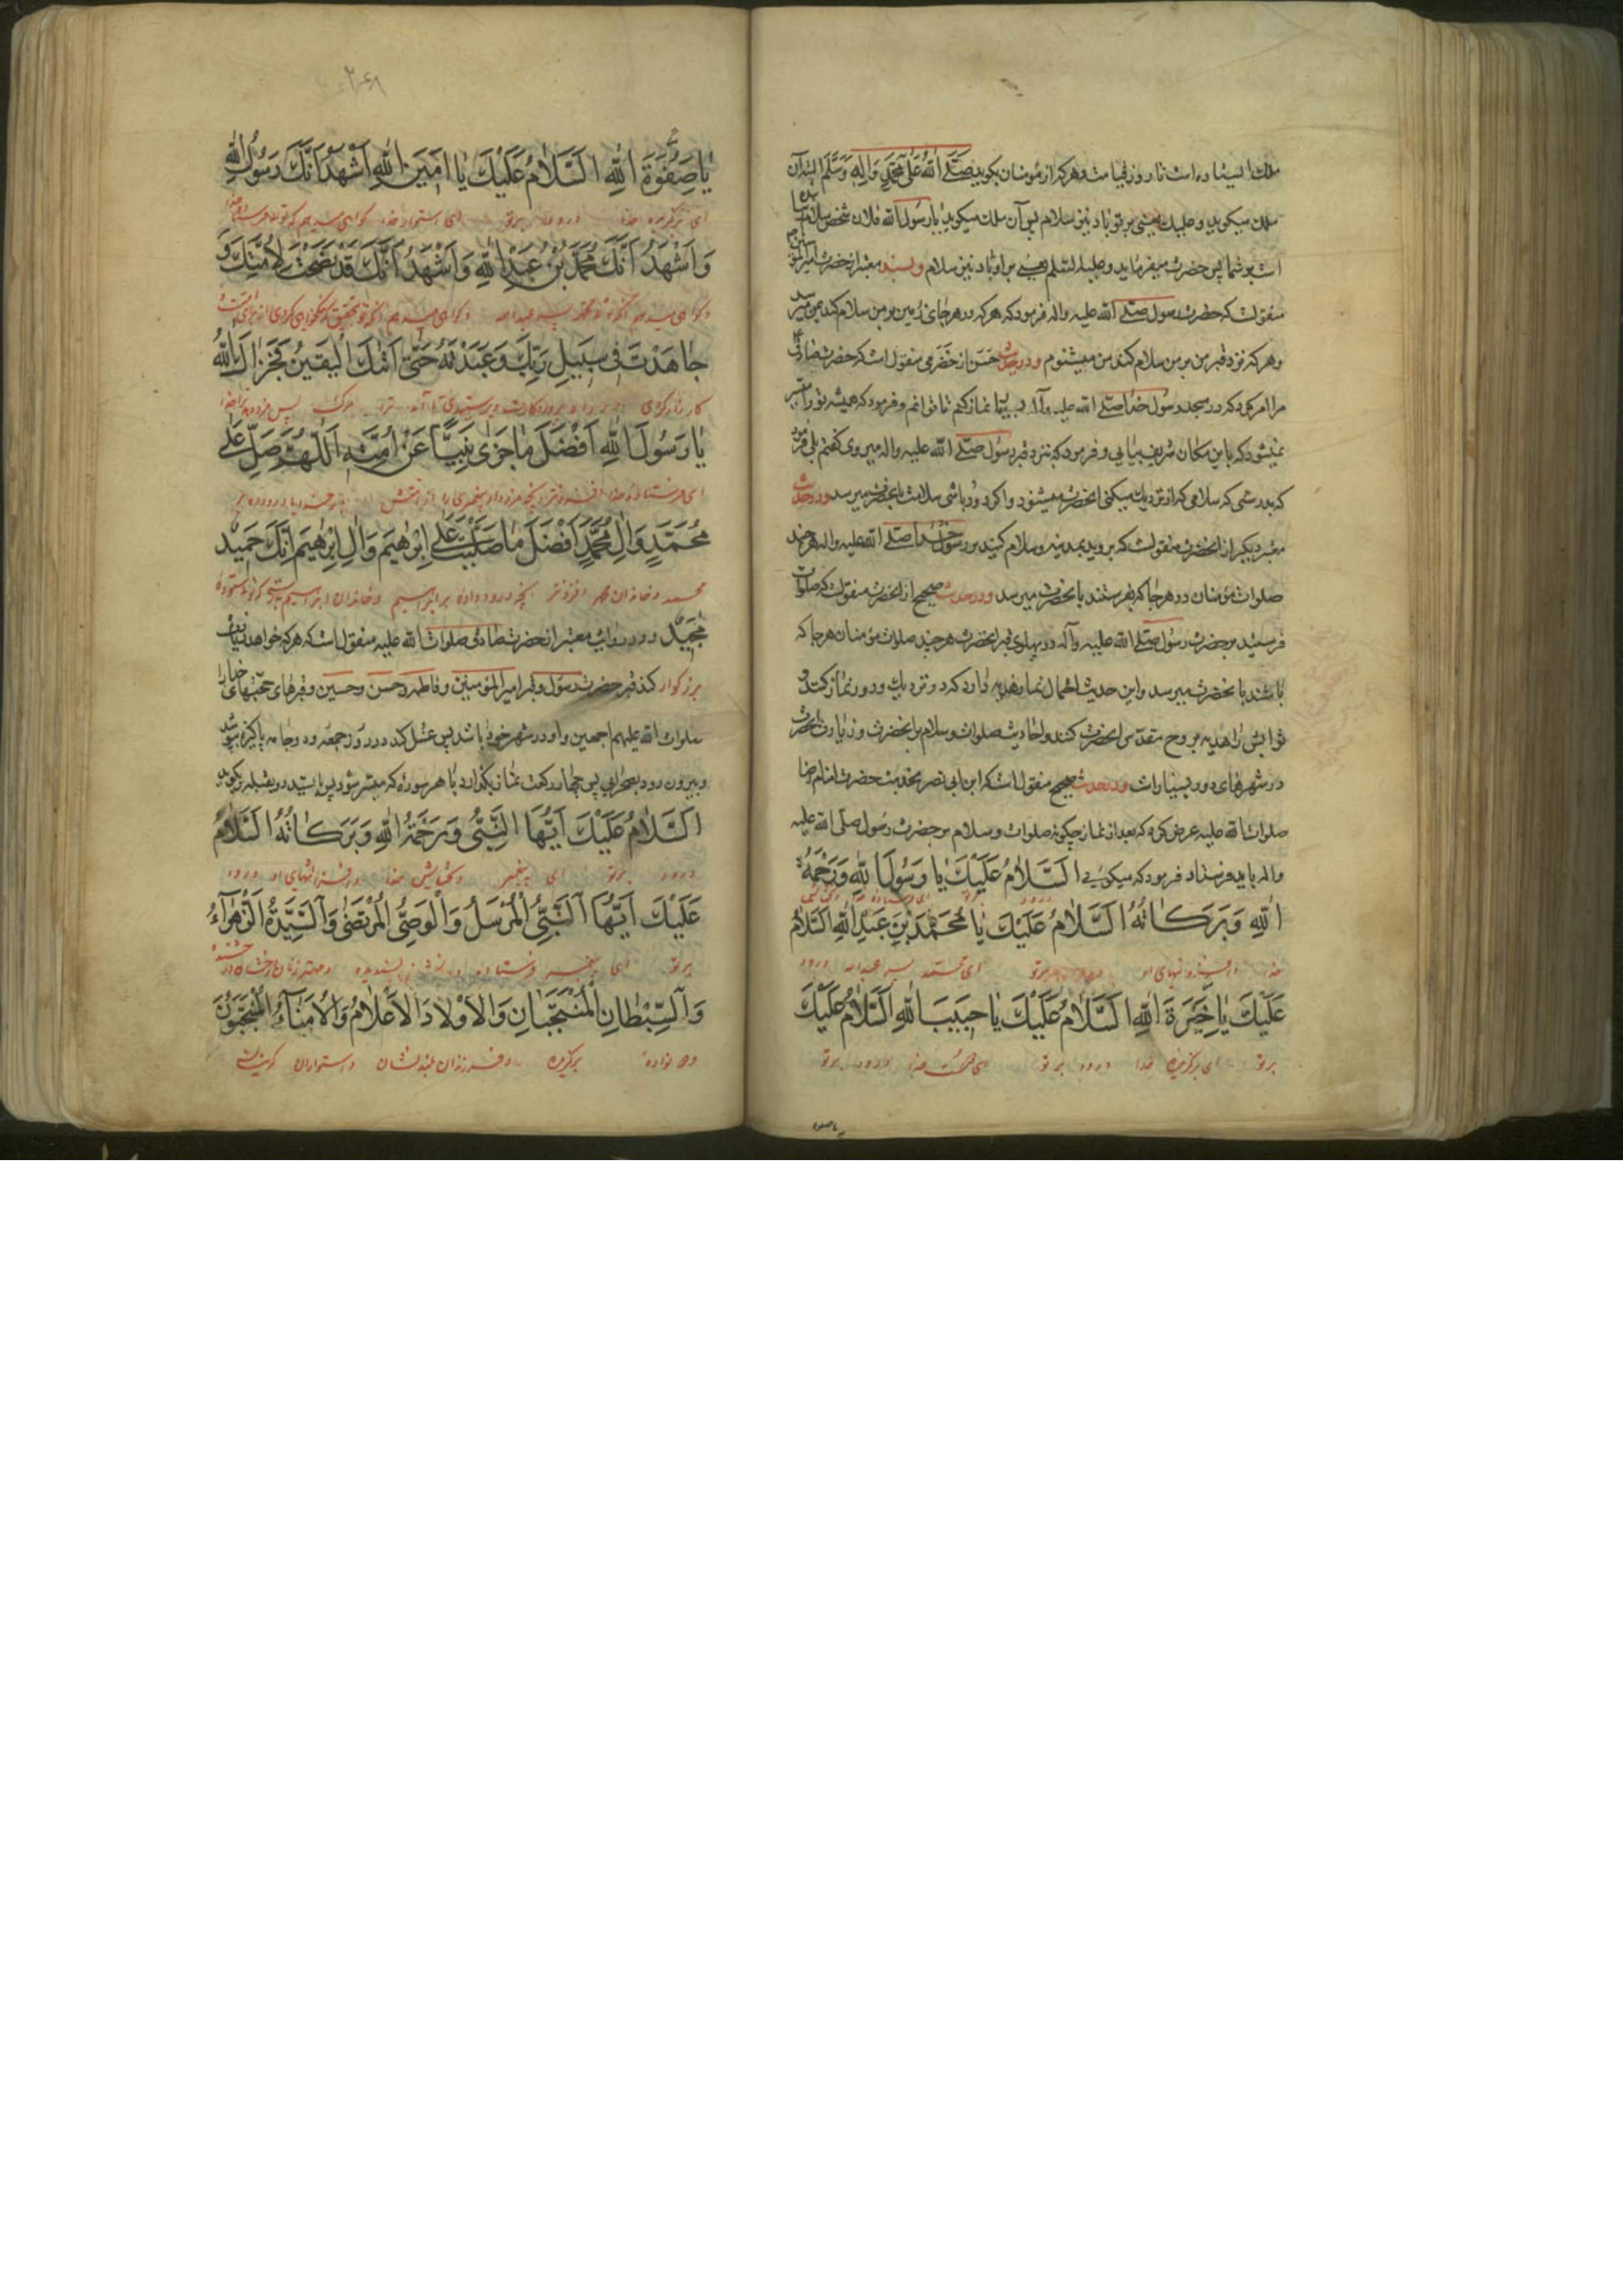 ملک ایستاده است تا روز قیامت و هر که از مؤمنان بکوید صَلَّی اللهُ عَلٰی مُحَمَّدٍ وَاٰلِهِ وَسَلَّمَ البته آن
ملک میکوید و علیک یعنی بر تو باد نیز سلام پس آن ملک میکوید یا رسول الله فلان شخص سلام
است بو شما پس حضرت میفرماید و علیه السلام یعنی بر او باد نیز سلام و بسند معتبر از حضرت امیر المؤ
منقولست که حضرت رسول صلی الله علیه واله فرمود که هر که در هر جای زمین بر من سلام کند بمن میرسد
و هر که نزد قبر من بر من سلام کند من میشنوم و در حدیث حسن از حضرمی منقول است که حضرت صادق
مرا امر کرد که در مسجد رسول خدا صلی الله علیه وآله بسیار نماز کنم تا توانم و فرمود که همیشه تو را میسر
نمیشود که باین مکان شریف بیایی و فرمود که بنزد قبر رسول صلی الله علیه واله میروی کفتم بلی فرمود
که بدرستی که سلامی که از نزدیک میکنی انحضرت میشنود و اکر دور باشی سلامت بانحضرت میرسد و در حدیث
معتبر دیکر از انحضرت منقولست که بروید بمدینه و سلام کنید بر رسول خدا صلی الله علیه واله هر چند
صلوات مؤمنان در هر جا که بفرستند بانحضرت میرسد و در حدیث صحیح از انحضرت منقولست که صلوات
فرستید بر حضرت رسول صلی الله علیه وآله در پهلوی قبر انحضرت هر چند صلوات مؤمنان هر جا که
باشند بانحضرت میرسد و این حدیث احتمال نماز هدیه دارد که در نزدیک و دور نماز کند و
ثوابش را هدیه بروح مقدس انحضرت کنند و احادیث صلوات و سلام بر انحضرت و زیارت انحضرت
در شهرهای دور بسیار است و در حدیث صحیح منقول است که ابن ابی نصر بخدمت حضرت امام رضا
صلوات الله علیه عرض کرد که بعد از نماز چکونه صلوات و سلام بر حضرت رسول صلی الله علیه
واله باید فرستاد فرمود که میکویی اَلسَّلاٰمُ عَلَیْكَ یٰا رَسُولَ اللهِ وَرَحْمَةُ
اللهِ وَبَرَکٰاتُهُ اَلسَّلاٰمُ عَلَیْكَ یٰا مُحَمَّدَ بْنَ عَبْدِ اللهِ اَلسَّلاٰمُ
خدا و افزونیهای او درود بر تو ای محمد پسر عبدالله درود
عَلَیْكَ یٰا خِیَرَةَ اللهِ اَلسَّلاٰمُ عَلَیْكَ یٰا حَبیبَ اللهِ اَلسَّلاٰمُ عَلَیْكَ
بر تو ای برکزیده خدا درود بر تو ای دوست خدا درود بر تو
یا صفوة
۳۶۸
یٰا صِفْوَةَ اللهِ اَلسَّلاٰمُ عَلَیْكَ یٰا اَمینَ اللهِ اَشْهَدُ اَنَّكَ رَسُولُ اللهِ
ای برکزیده خدا درود بر تو ای استوار خدا کواهی میدهم که تو
وَاَشْهَدُ اَنَّكَ مُحَمَّدُ بْنُ عَبْدِ اللهِ وَاَشْهَدُ اَنَّكَ قَدْ نَصَحْتَ لِاُمَّتِكَ وَ
و کواهی میدهم انکه تو محمد پسر عبدالله و کواهی میدهم انکه تو بتحقیق که نیکخواهی کردی از برای امت
جٰاهَدْتَ فی سَبیلِ رَبِّكَ وَعَبَدْتَهُ حَتّٰی اَتٰیكَ الْیَقینُ فَجَزٰاكَ اللهُ
کارزار کردی در راه پروردکارت و پرستیدی تا آمد ترا مرک پس مزد دهد ترا خدا
یٰا رَسُولَ اللهِ اَفْضَلَ مٰا جَزٰی نَبِیًّا عَنْ اُمَّتِهِ اَللّٰهُمَّ صَلِّ عَلٰی
ای فرستاده خدا افزونتر انچه مزد داد پیغمبری را از امتش بار خدایا درود ده بر
مُحَمَّدٍ وَاٰلِ مُحَمَّدٍ اَفْضَلَ مٰا صَلَّیْتَ عَلٰی اِبْرٰهیمَ وَاٰلِ اِبْرٰهیمَ اِنَّكَ حَمیدٌ
محمد و خاندان محمد افزونتر انچه درود داده بر ابراهیم و خاندان ابراهیم بدرستی که تو ستوده
مَجیدٌ و در روایت معتبر از حضرت صادق صلوات الله علیه منقول است که هر که خواهد زیارت
بزرکوار کند قبر حضرت رسول و قبر امیر المؤمنین و فاطمه و حسن و حسین و قبرهای حجتهای خدا را
صلوات الله علیهم اجمعین و او در شهر خود باشد پس غسل کند در روز جمعه و دو جامه پاکیزه بپوشد
و بیرون رود بصحرایی پس چهار رکعت نماز بکذارد با هر سوره که میسر شود پس بایستد رو بقبله و بکوید
اَلسَّلاٰمُ عَلَیْكَ اَیُّهَا النَّبِیُّ وَرَحْمَةُ اللهِ وَبَرَکٰاتُهُ اَلسَّلاٰمُ
درود بر تو ای پیغمبر و بخشایش خدا و افزونیهای او درود
عَلَیْكَ اَیُّهَا النَّبِیُّ الْمُرْسَلُ وَالْوَصِیُّ الْمُرْتَضٰی وَالسَّیِّدَةُ الزَّهْرٰآءُ
بر تو ای پیغمبر فرستاده و پسندیده و مهتر زنان
وَالسِّبْطٰانِ الْمُنْتَجَبٰانِ وَالْاَوْلاٰدُ الْاَعْلاٰمُ وَالْاُمَنٰآءُ الْمُنْتَجَبُونَ
و دو نواده برکزیده و فرزندان بلند نشان و استواران